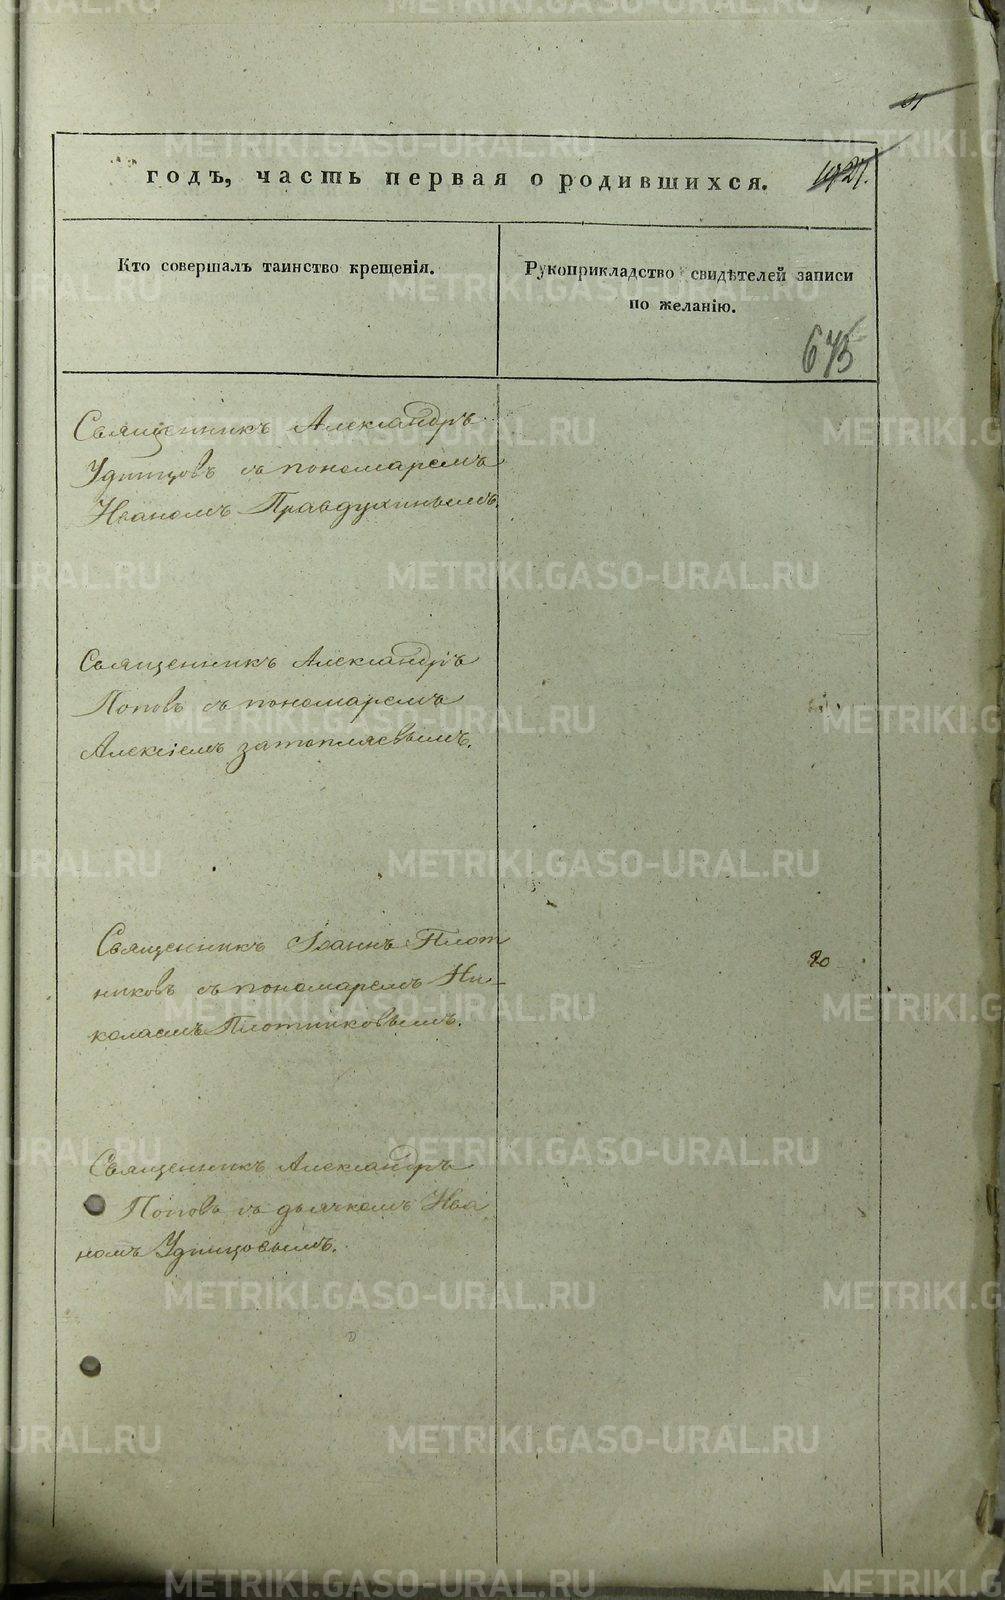 годъ, часть первая о родившихся.
Кто совершалъ таинство крещенія.
Рукоприкладство свидѣтелей записи
по желанію.
675
Священникъ Александръ
Удинцовъ съ пономаремъ
Иваномъ Правдухинымъ.
Священникъ Александръ
Поповъ съ пономаремъ
Алексіемъ Затопляевымъ.
Священникъ Іоаннъ Плот
никовъ съ пономаремъ Ни-
колаемъ Плотниковымъ.
Священникъ Александръ
Поповъ съ дьячкомъ Ива
номъ Удинцовымъ.
METRIKI.GASO-URAL.RU